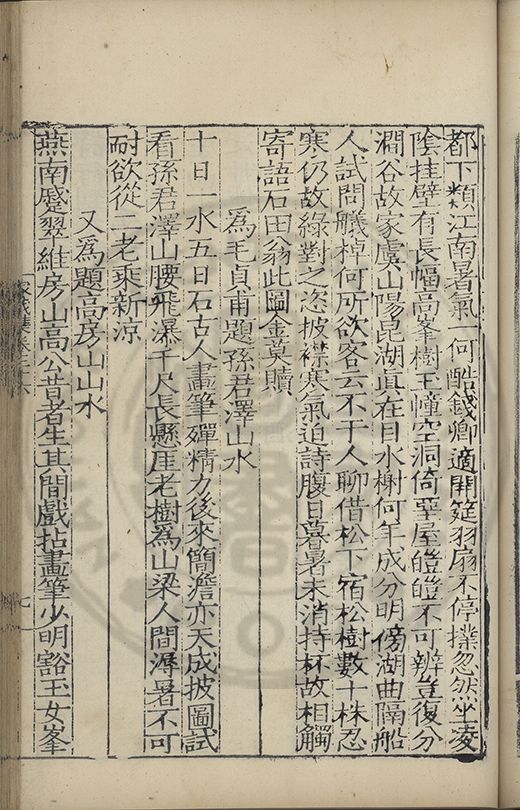 都下類江南暑氣一何酷錢卿適開筵羽扇不停撲忽然坐凌
陰挂壁有長幅高峯樹玉幢空洞倚堊屋皚皚不可辨豈復分
澗谷故家虞山陽昆湖眞在目水榭何年成分明傍湖曲隔船
人試問艤棹何所欲客云不干人聊借松下宿松樹數十株忍
寒仍故綠對之恣披襟寒氣迫詩腹日暮暑未消持杯故相觸
寄語石田翁此圖金莫贖
爲毛貞甫題孫君澤山水
十日一水五日石古人畫筆殫精力後來簡澹亦天成披圖試
看孫君澤山腰飛瀑千尺長懸厓老樹爲山梁人間溽暑不可
耐欲從二老乘新涼
又爲題高房山山水
燕南蹙翠維房山高公昔者生其間戲拈畫筆少明豁玉女峯
七